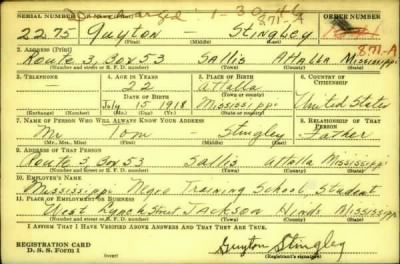 Discharged 1-30-46
871-A
SERIAL NUMBER 1. NAME (Print) ORDER NUMBER
2275 Guyton - Stingley
871-A
(First) (Middle) (Last)
2. ADDRESS (Print)
Route 3, Box 53 Sallis Attalla Mississippi
(Number and street or R. F. D. number) (Town) (County) (State)
3. TELEPHONE 4. AGE IN YEARS 5. PLACE OF BIRTH 6. COUNTRY OF CITIZENSHIP
— 22 Attalla
DATE OF BIRTH
July 15 1918 Mississippi United States
(Exchange) (Number) (Mo.) (Day) (Yr.) (State or country)
7. NAME OF PERSON WHO WILL ALWAYS KNOW YOUR ADDRESS 8. RELATIONSHIP OF THAT PERSON
Mr Tom — Stingley Father
(Mr., Mrs., Miss) (First) (Middle) (Last)
9. ADDRESS OF THAT PERSON
Route 3, Box 53 Sallis Attalla Mississippi
(Number and street or R. F. D. number) (Town) (County) (State)
10. EMPLOYER'S NAME
Mississippi Negro Training School, Student
11. PLACE OF EMPLOYMENT OR BUSINESS
West Lynch Street Jackson Hinds Mississippi
(Number and street or R. F. D. number) (Town) (County) (State)
I AFFIRM THAT I HAVE VERIFIED ABOVE ANSWERS AND THAT THEY ARE TRUE.
REGISTRATION CARD
D. S. S. Form 1
Guyton Stingley
(Registrant's signature)